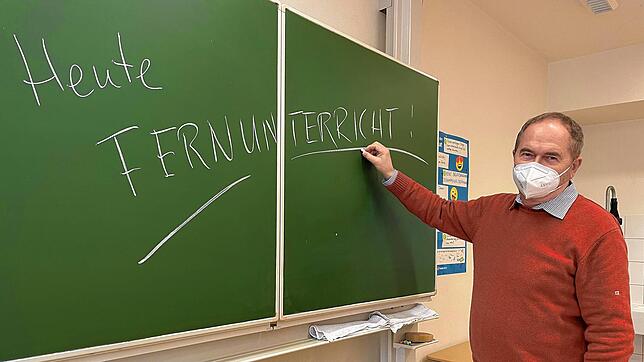 Heute
FERNUNTERRICHT!